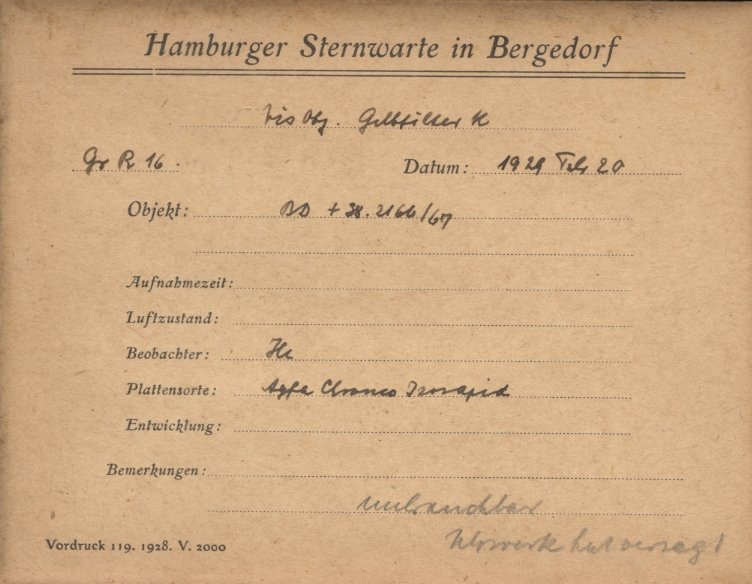 Hamburger Sternwarte in Bergedorf
Vis Obj. Gelbfilter K
Gr R 16. Datum: 1929 Feb 20
Objekt: BD + 38.2166/67
Aufnahmezeit:
Luftzustand:
Beobachter:
Plattensorte: Agfa Chromo Isorapid
Entwicklung:
Bemerkungen:
unbrauchbar
Uhrwerk hat versagt
Vordruck 119. 1928. V. 2000